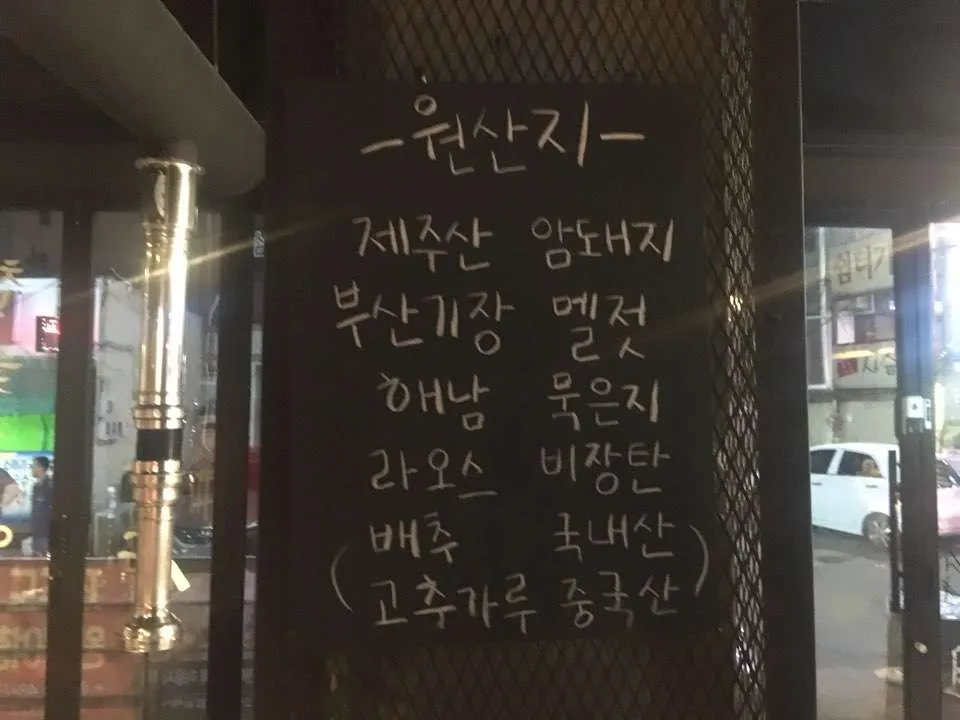 -원산지-
제주산 암돼지
부산기장 멜젓
해남 묵은지
라오스 비장탄
(배추 국내산
고추가루 중국산)